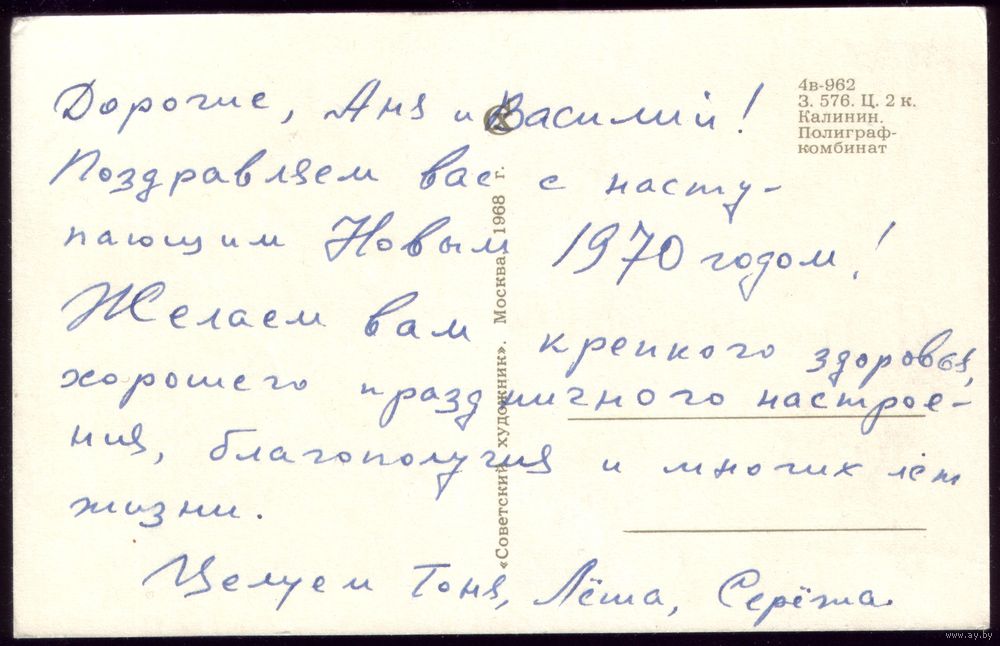 Дорогие, Аня и Василий!
Поздравляем вас с насту-
пающим Новым 1970 годом!
Желаем вам крепкого здоровья,
хорошего праздничного настрое-
ния, благополучия и многих лет
жизни.
Целуем Тоня, Лёша, Серёжа.
4в-962
З. 576. Ц. 2 к.
Калинин.
Полиграф-
комбинат
«Советский художник». Москва, 1968 г.
www.ay.by